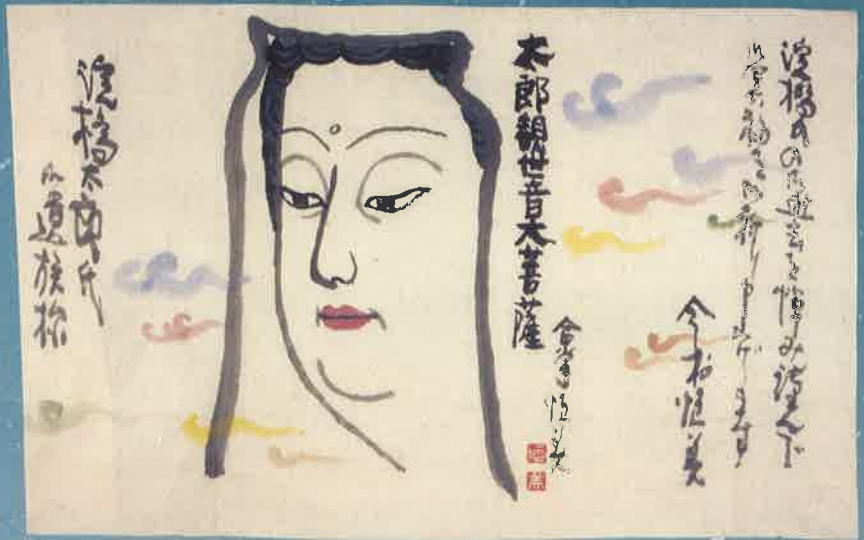 淀橋の御逝去を悼み謹んで
御冥福をお祈り申し上げます
今村恒美
太郎観世音大菩薩
恒美
淀橋太郎氏
御遺族様